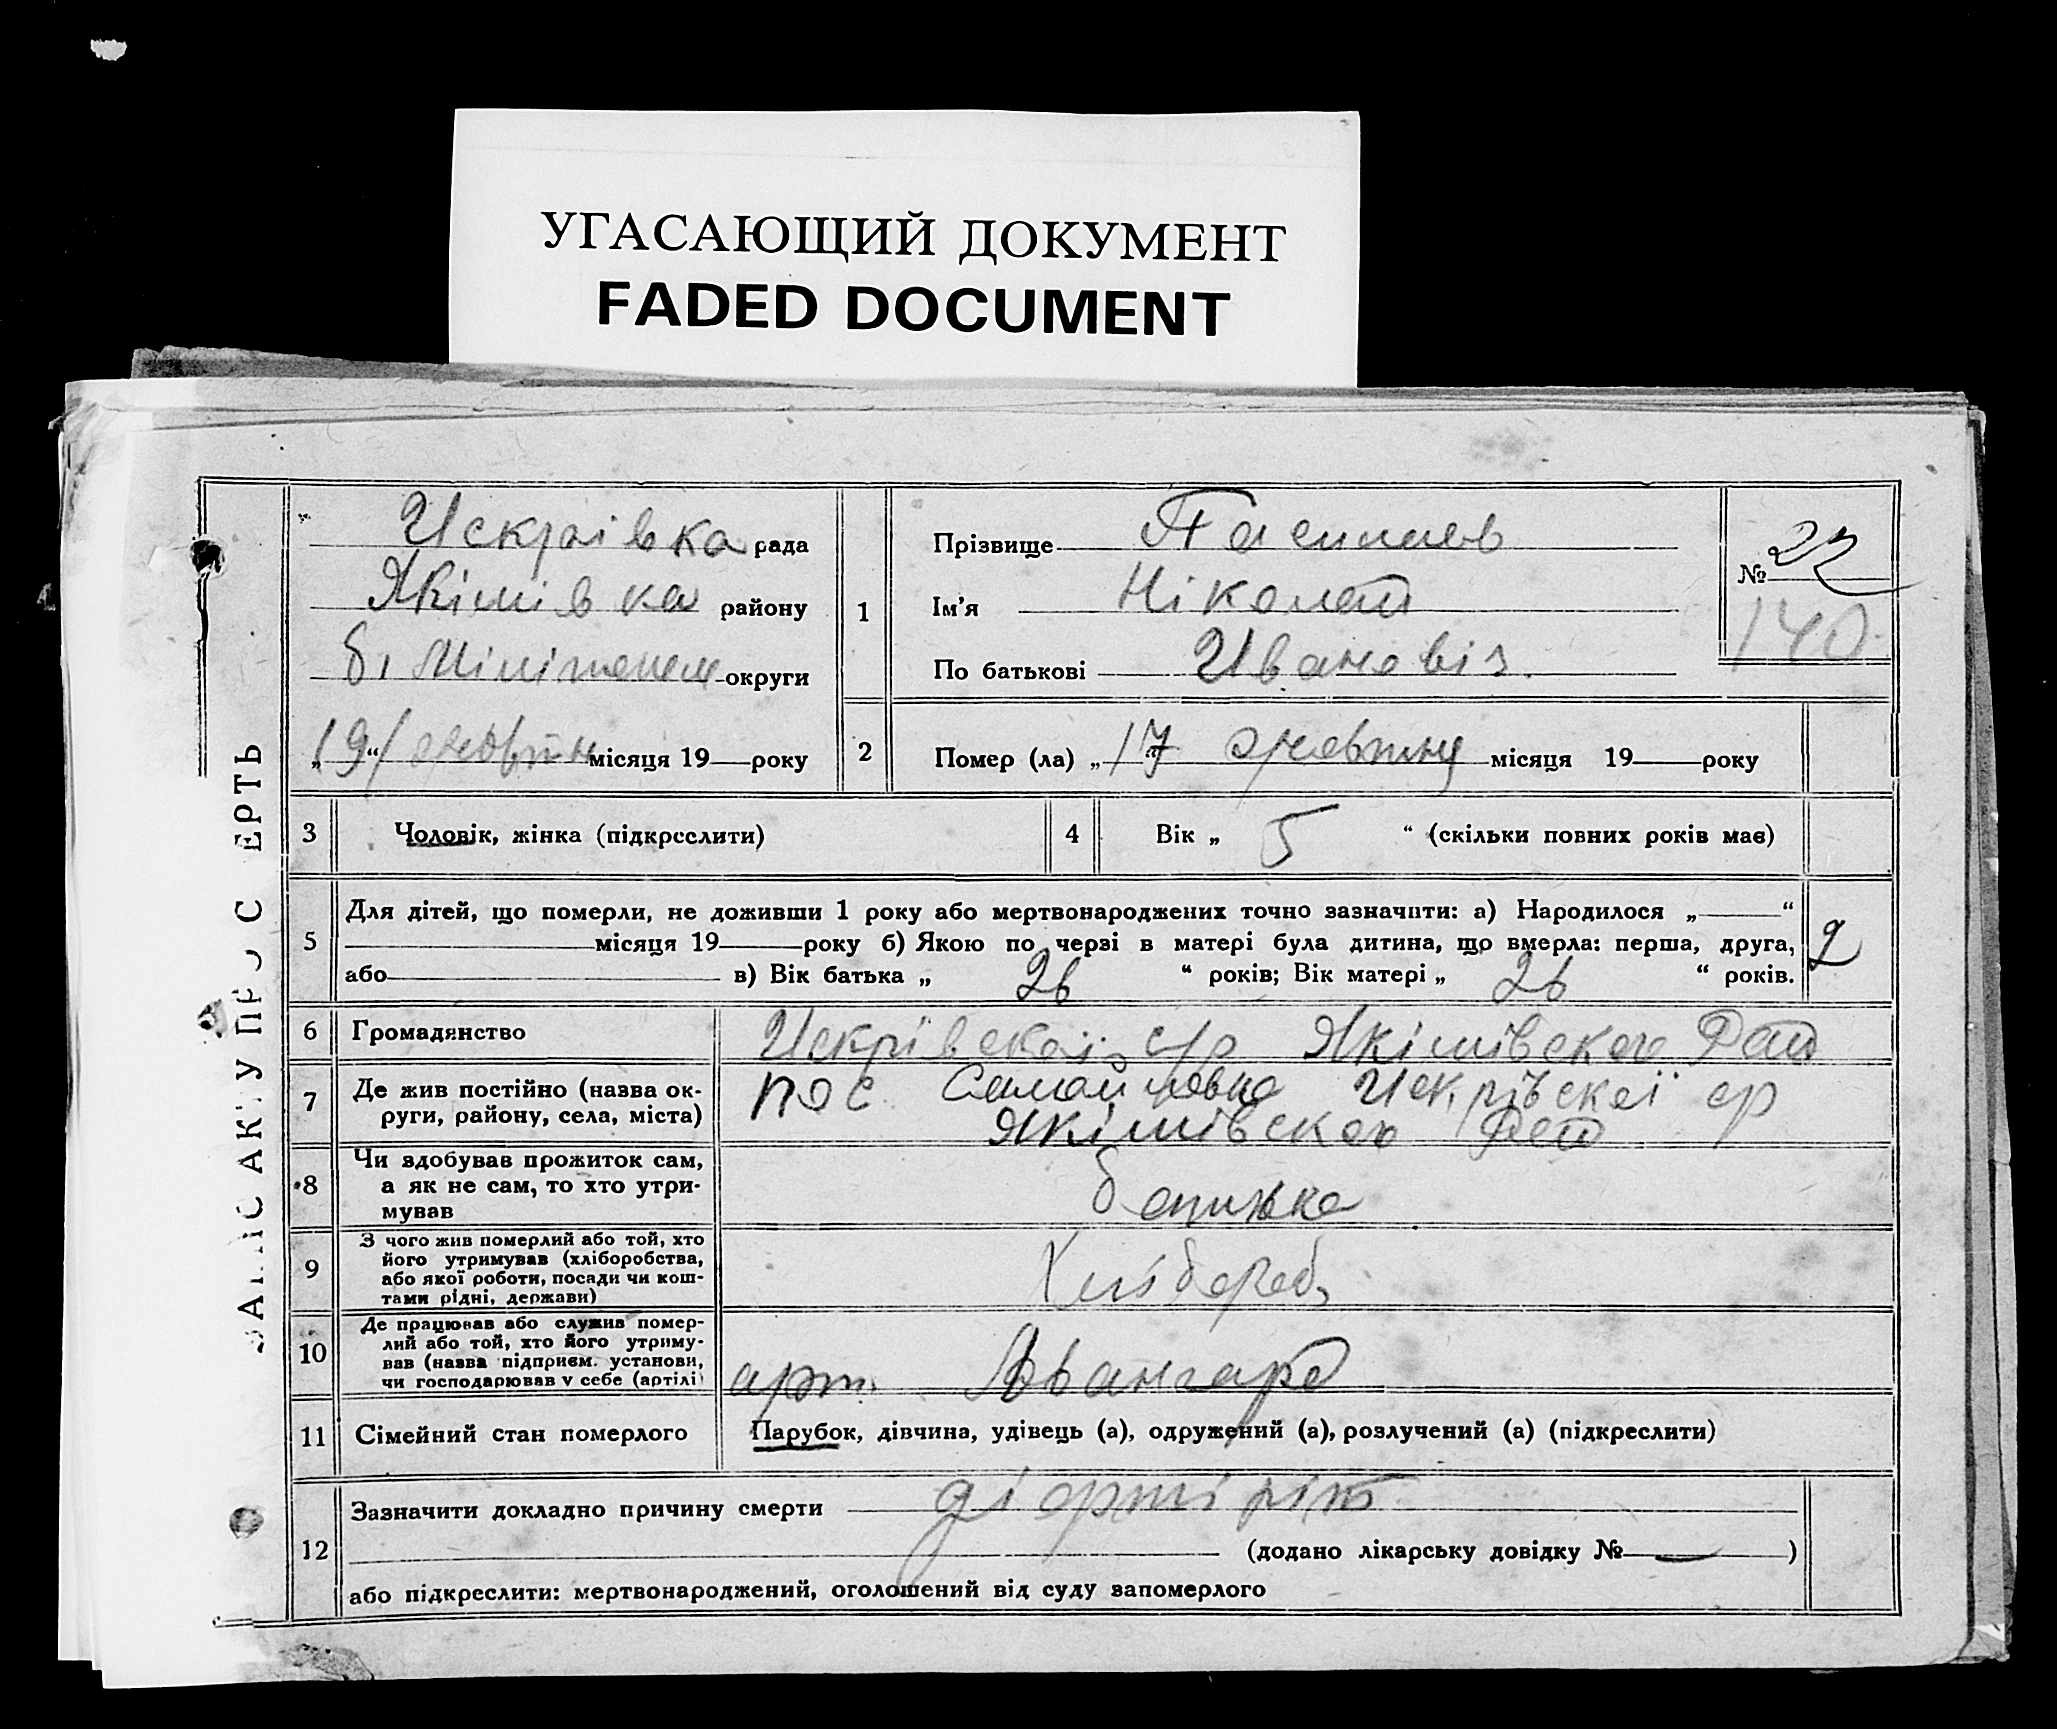 УГАСАЮЩИЙ ДОКУМЕНТ
FADED DOCUMENT
ЕРТЬ
Искраівка рада
Якімівка району
б. округи
„19“ жовтн місяця 19 року
1
Прізвище
Ім'я Ніколай
По батькові Ивановіз.
№ 22
140
2
Помер (ла) „17 жовтня місяця 19 року
3
Чоловік, жінка (підкреслити)
4
Вік „ 5 “ (скільки повних років має)
5
Для дітей, що померли, не доживши 1 року або мертвонароджених точно зазначити: а) Народилося „ “
місяця 19 року б) Якою по черзі в матері була дитина, що вмерла: перша, друга,
або в) Вік батька „ 26 “ років; Вік матері „ 26 “ років.
2
6
Громадянство
Искрівскоі с/р Якімівского Рай
7
Де жив постійно (назва ок-
руги, району, села, міста)
пос Искрівскоі ср
Якімівского Рай
8
Чи здобував прожиток сам,
а як не сам, то хто утри-
мував
батько
9
З чого жив померлий або той, хто
його утримував (хліборобства,
або якої роботи, посади чи кош-
тами рідні, держави)
Хлібороб
10
Де працював або служив помер-
лий або той, хто його утриму-
вав (назва підприєм. установи,
чи господарював у себе (артілі)
арт. Авангард
11
Сімейний стан померлого
Парубок, дівчина, удівець (а), одружений (а), розлучений (а) (підкреслити)
12
Зазначити докладно причину смерти
(додано лікарську довідку № — )
або підкреслити: мертвонароджений, оголошений від суду запомерлого